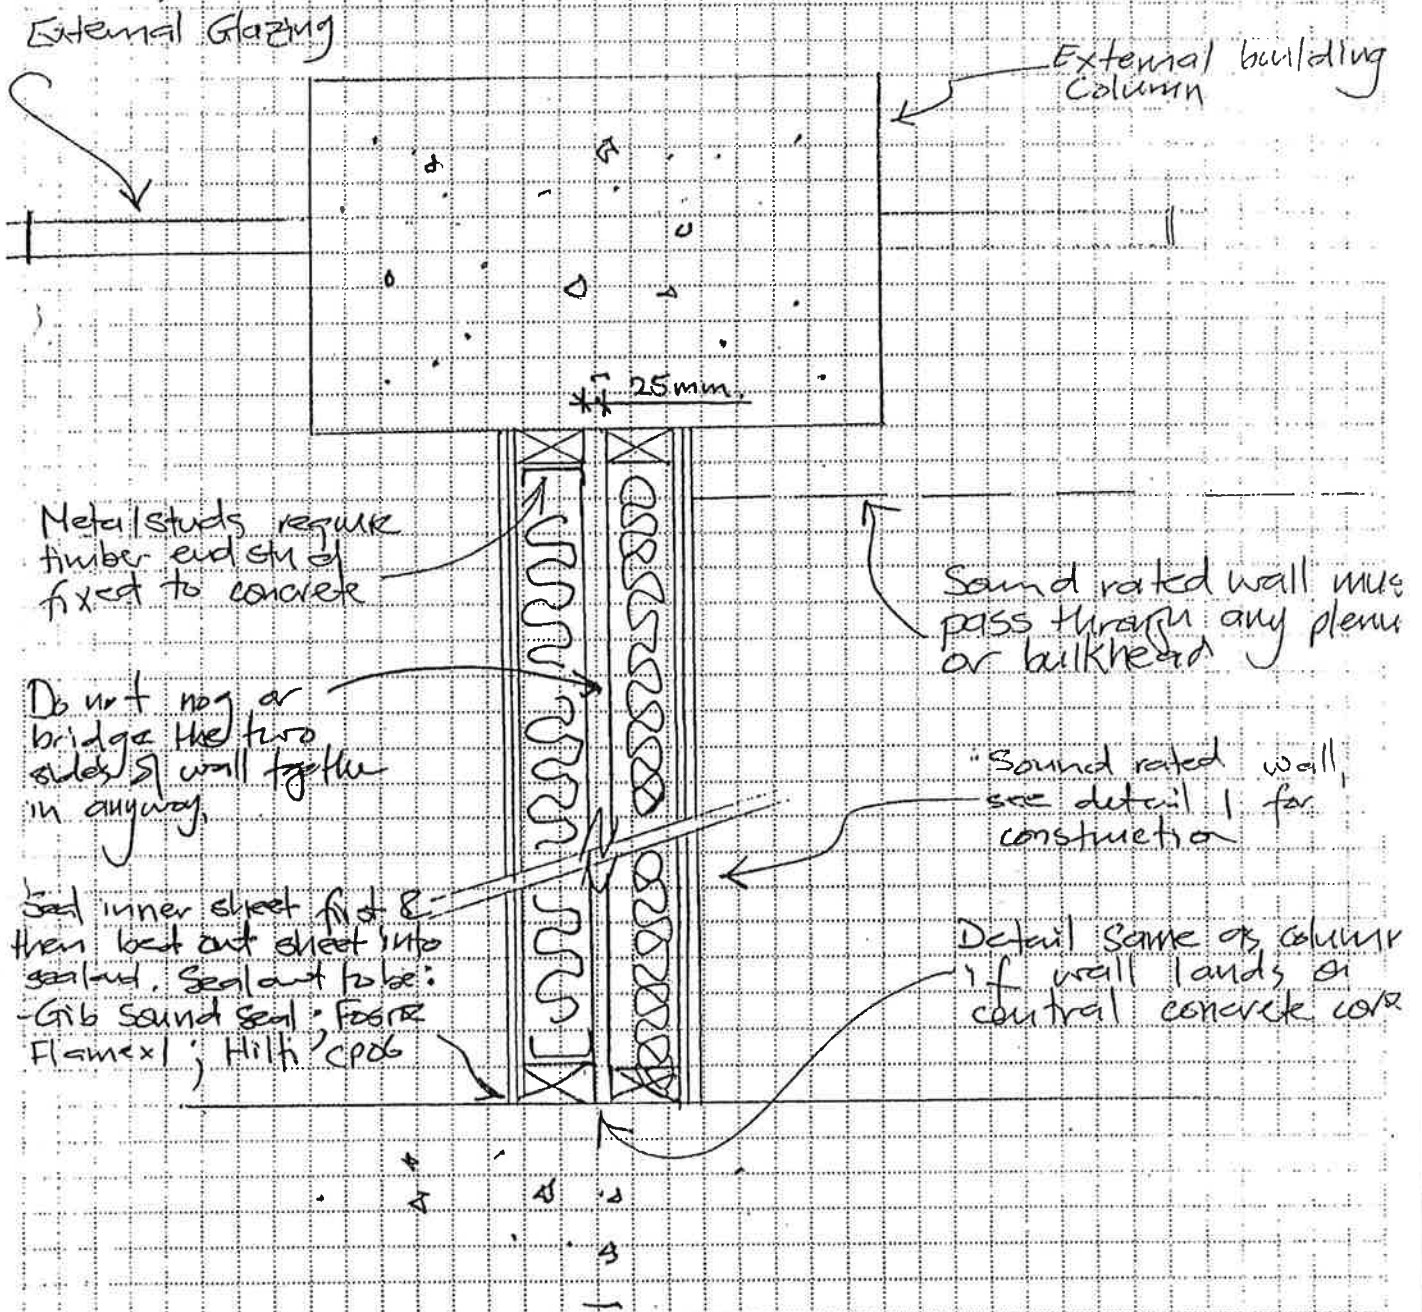 External Glazing
External building
Column
25mm
Metal studs require
timber end stud
fixed to concrete
Sound rated wall mus
pass through any plenu
or bulkhead
Do not nog or
bridge the two
sides of wall together
in anyway.
Sound rated wall,
see detail 1 for
construction
Seal inner sheet first &
then bed out sheet into
sealant. Sealant to be:
-Gib Sound Seal; Fosroc
Flamex1; Hilti CP06
Detail same as column
if wall lands on
central concrete core